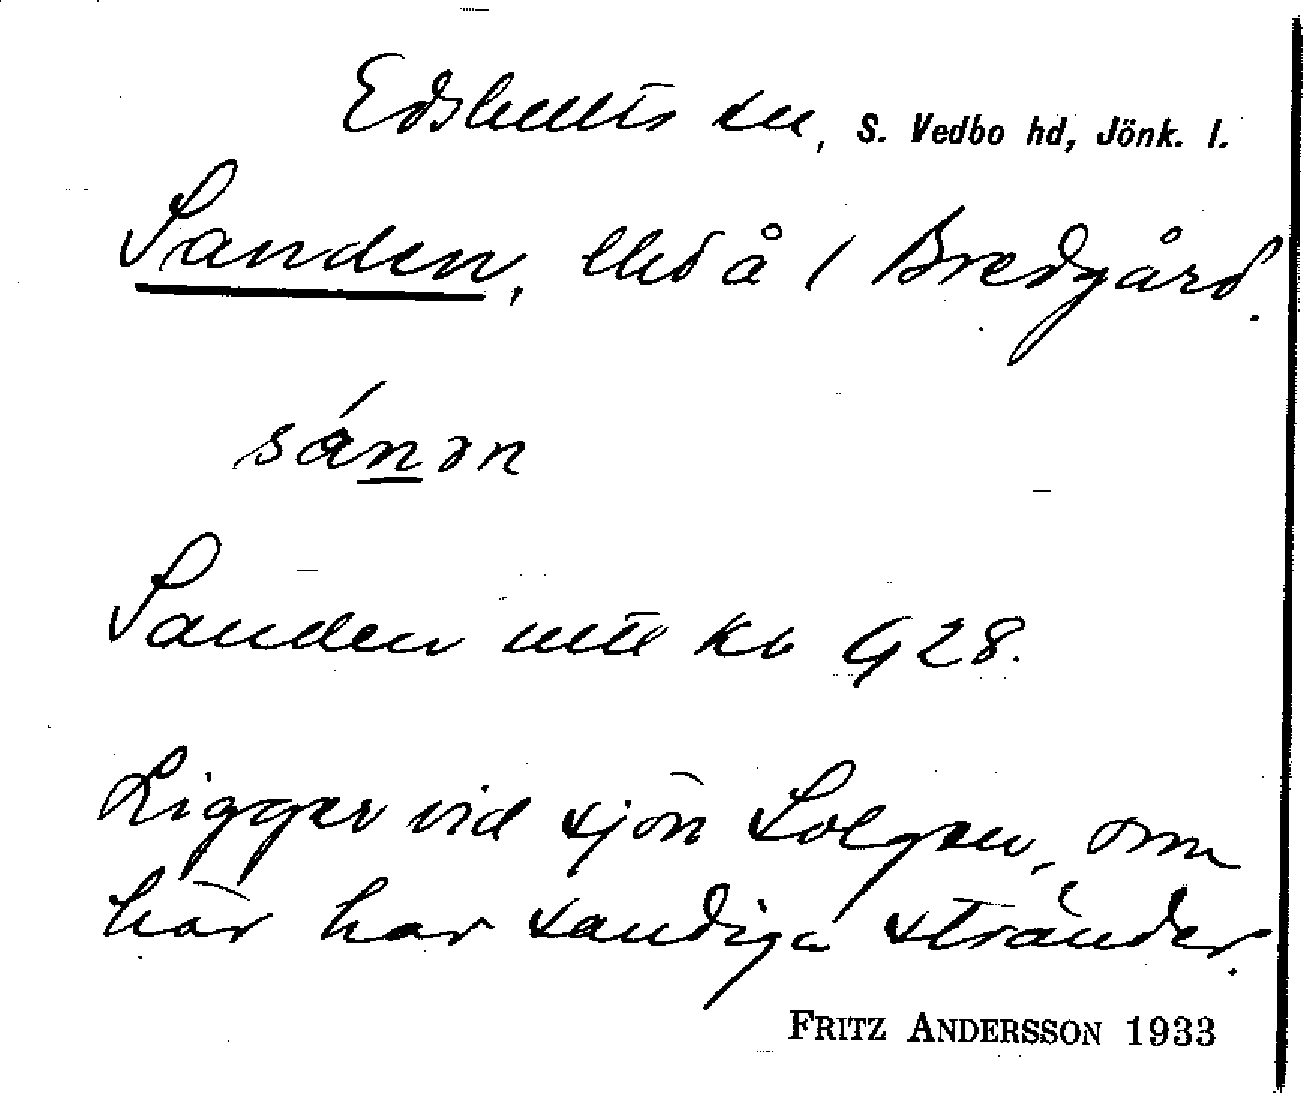 Edshults sn, S. Vedbo hd, Jönk. l.
Sanden, å 1 Bredgård.
sánən
Sanden kb G 28.
Ligger vid sjön Solgen, som
här har sandiga stränder.
FRITZ ANDERSSON 1933